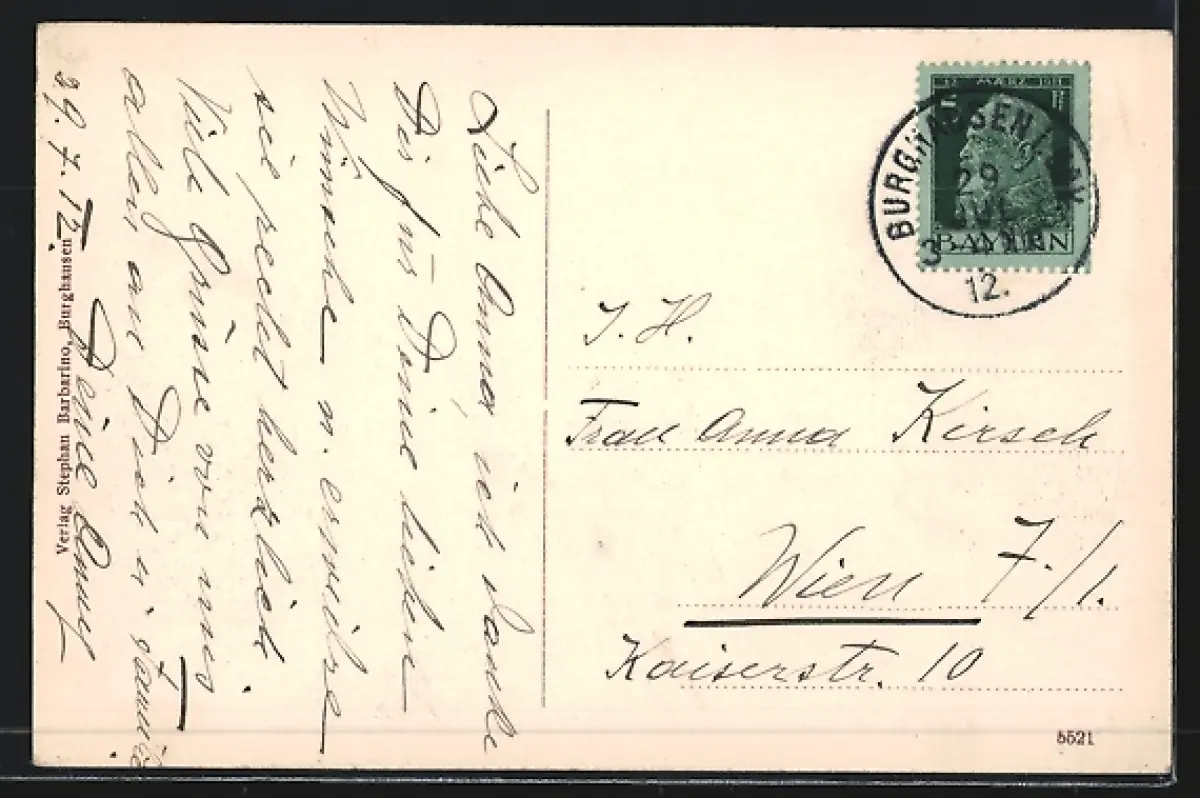 Liebe Anna ich danke
Dir für Deine lieben
Wünsche u. erwidre
sie recht herzlich.
Viele Grüsse von uns
allen an Dich u. Familie
Deine Emmy
29. 7. 12.
Verlag Stephan Barbarino, Burghausen
12 MÄRZ 1911
5
BAYERN
BURGHAUSEN
29
JUL
3
12.
I. H.
Frau Anna Kirsch
Wien 7./1.
Kaiserstr. 10
5521